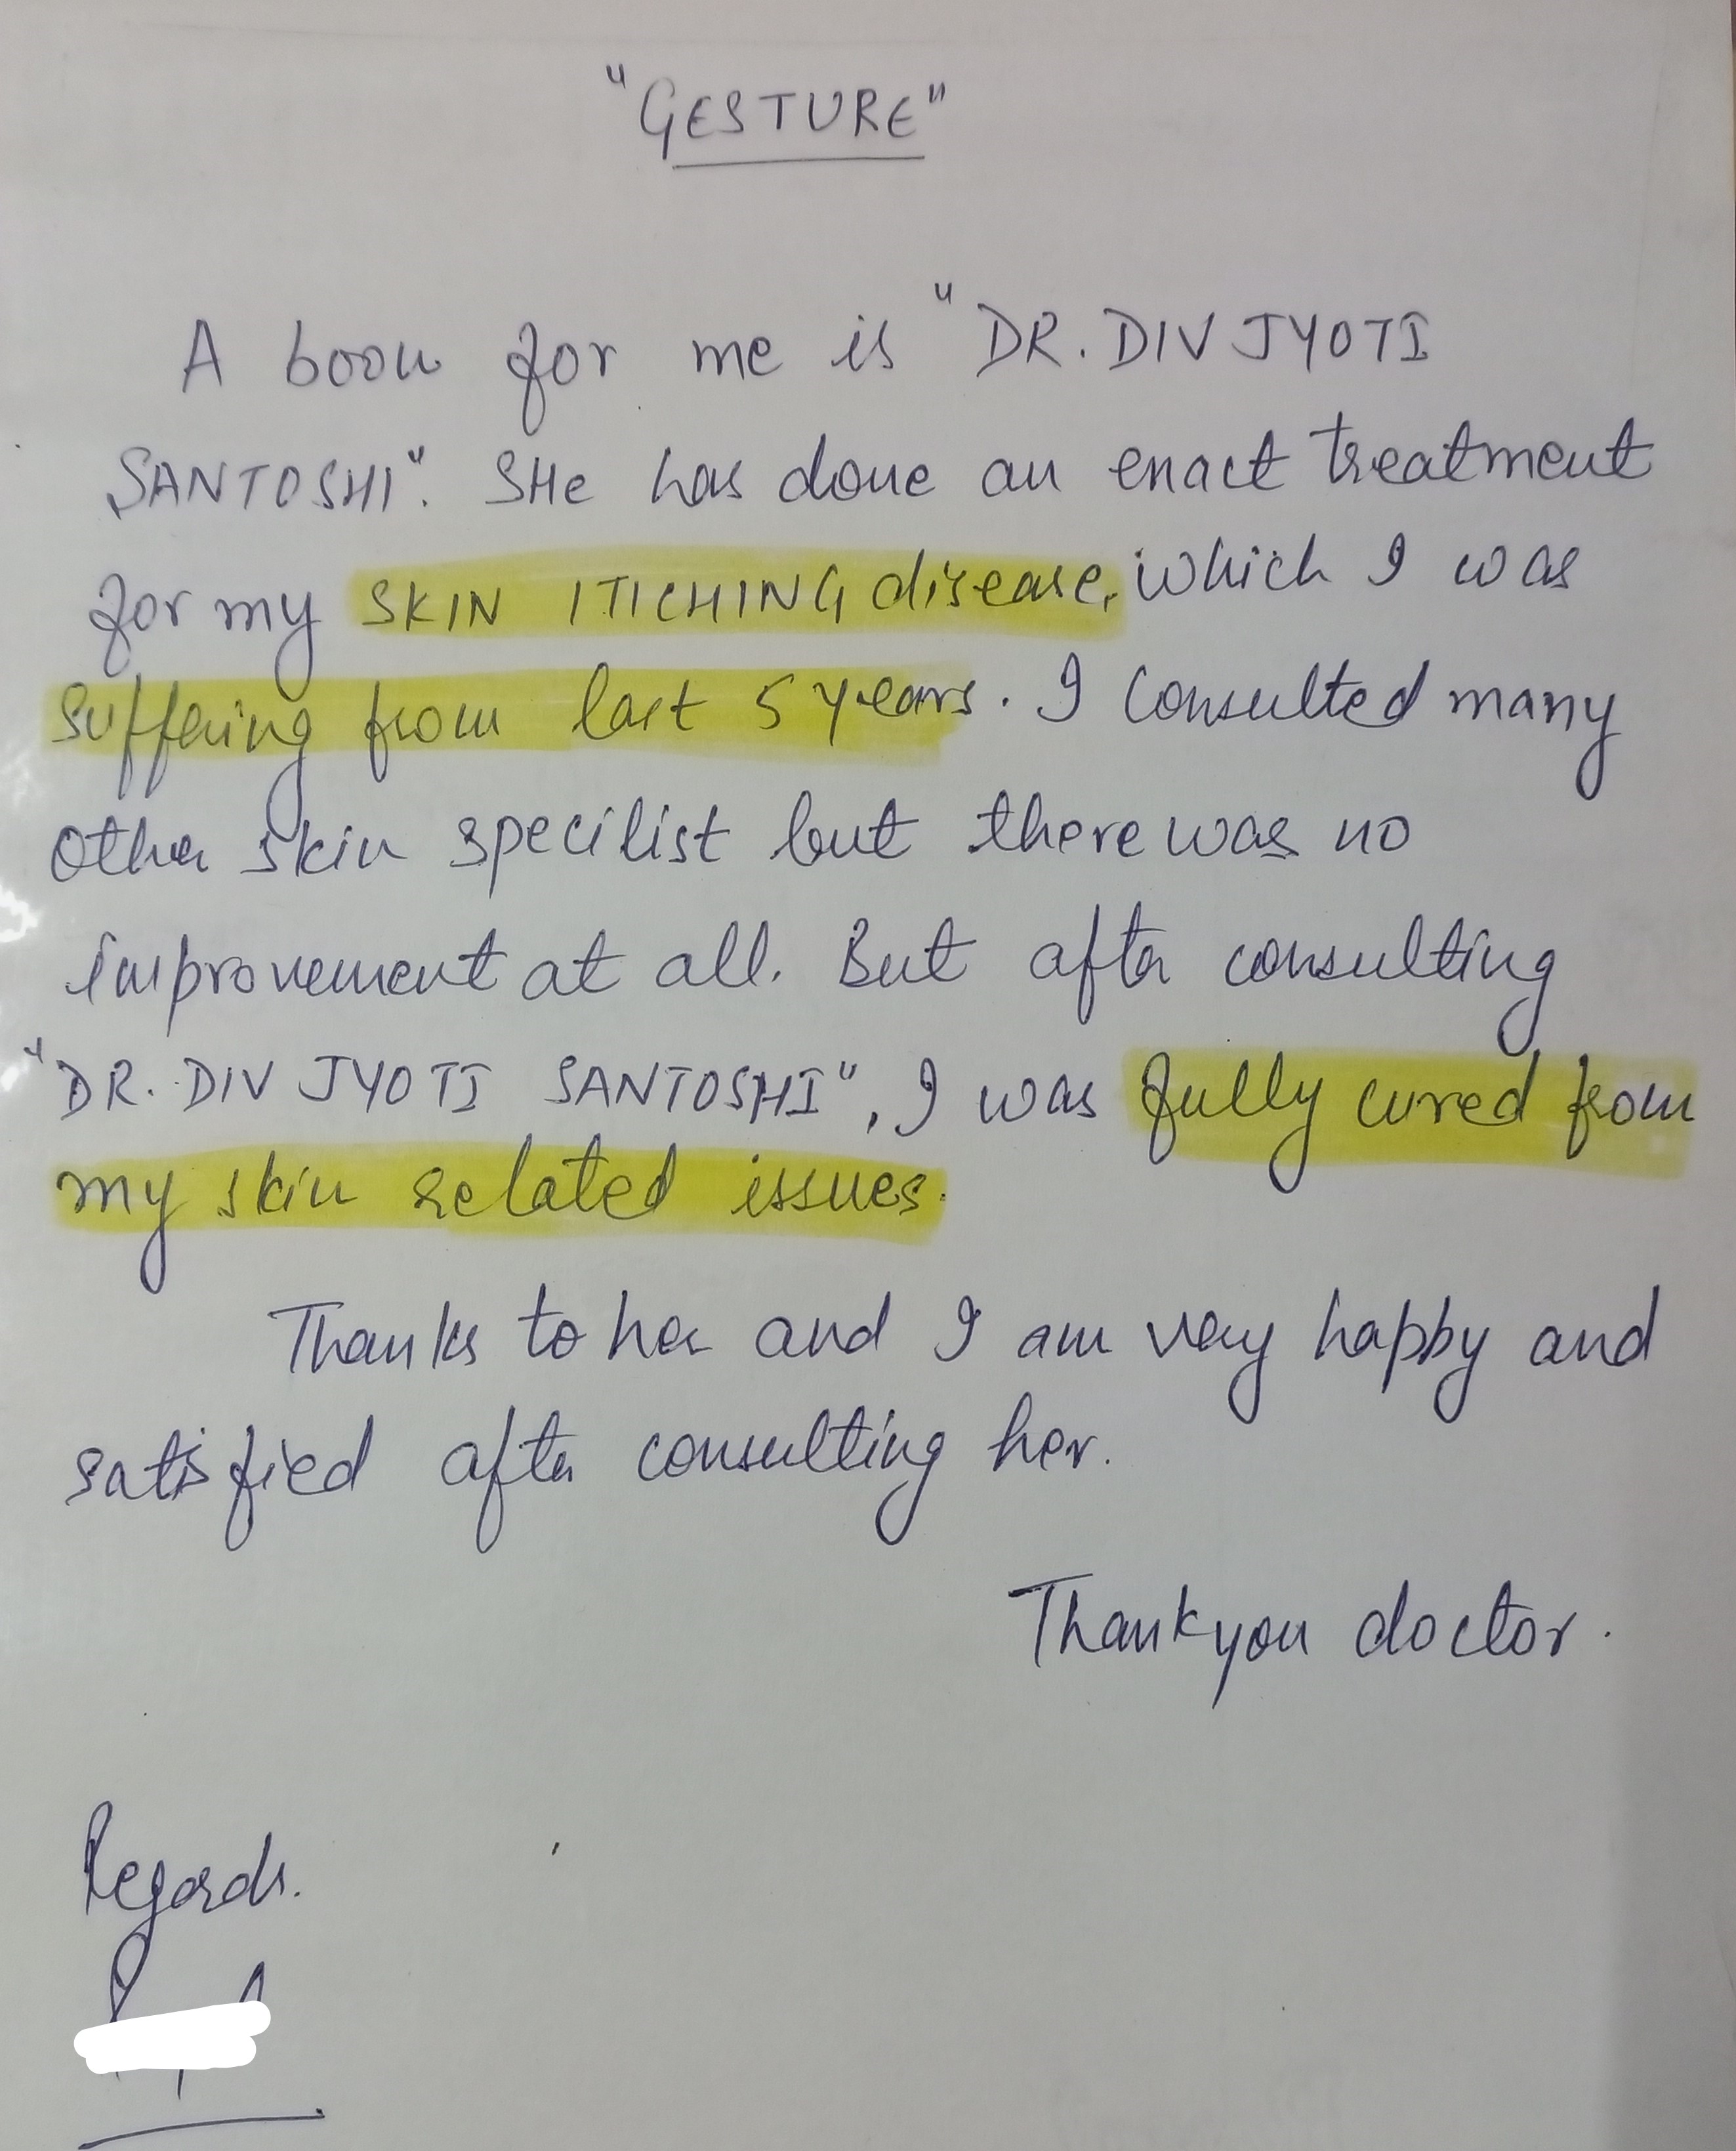 "GESTURE"
A boon for me is "DR. DIV JYOTI
SANTOSHI". SHe has done an enact treatment
for my SKIN ITICHING disease, which I was
suffering from last 5 years. I consulted many
other skin specilist but there was no
improvement at all. But after consulting
"DR. DIV JYOTI SANTOSHI", I was fully cured from
my skin related issues.
Thanks to her and I am very happy and
satisfied after consulting her.
Thankyou doctor.
Regards.